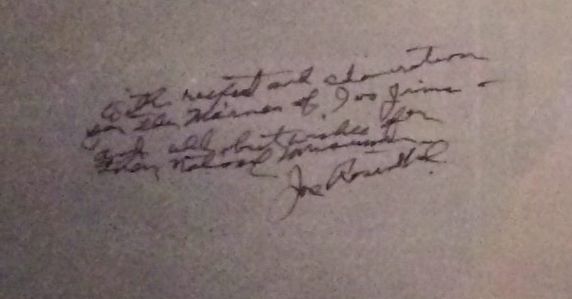 With respect and admiration
for the Marines of Iwo Jima -
and all best wishes for
their National Monument
Joe Rosenthal